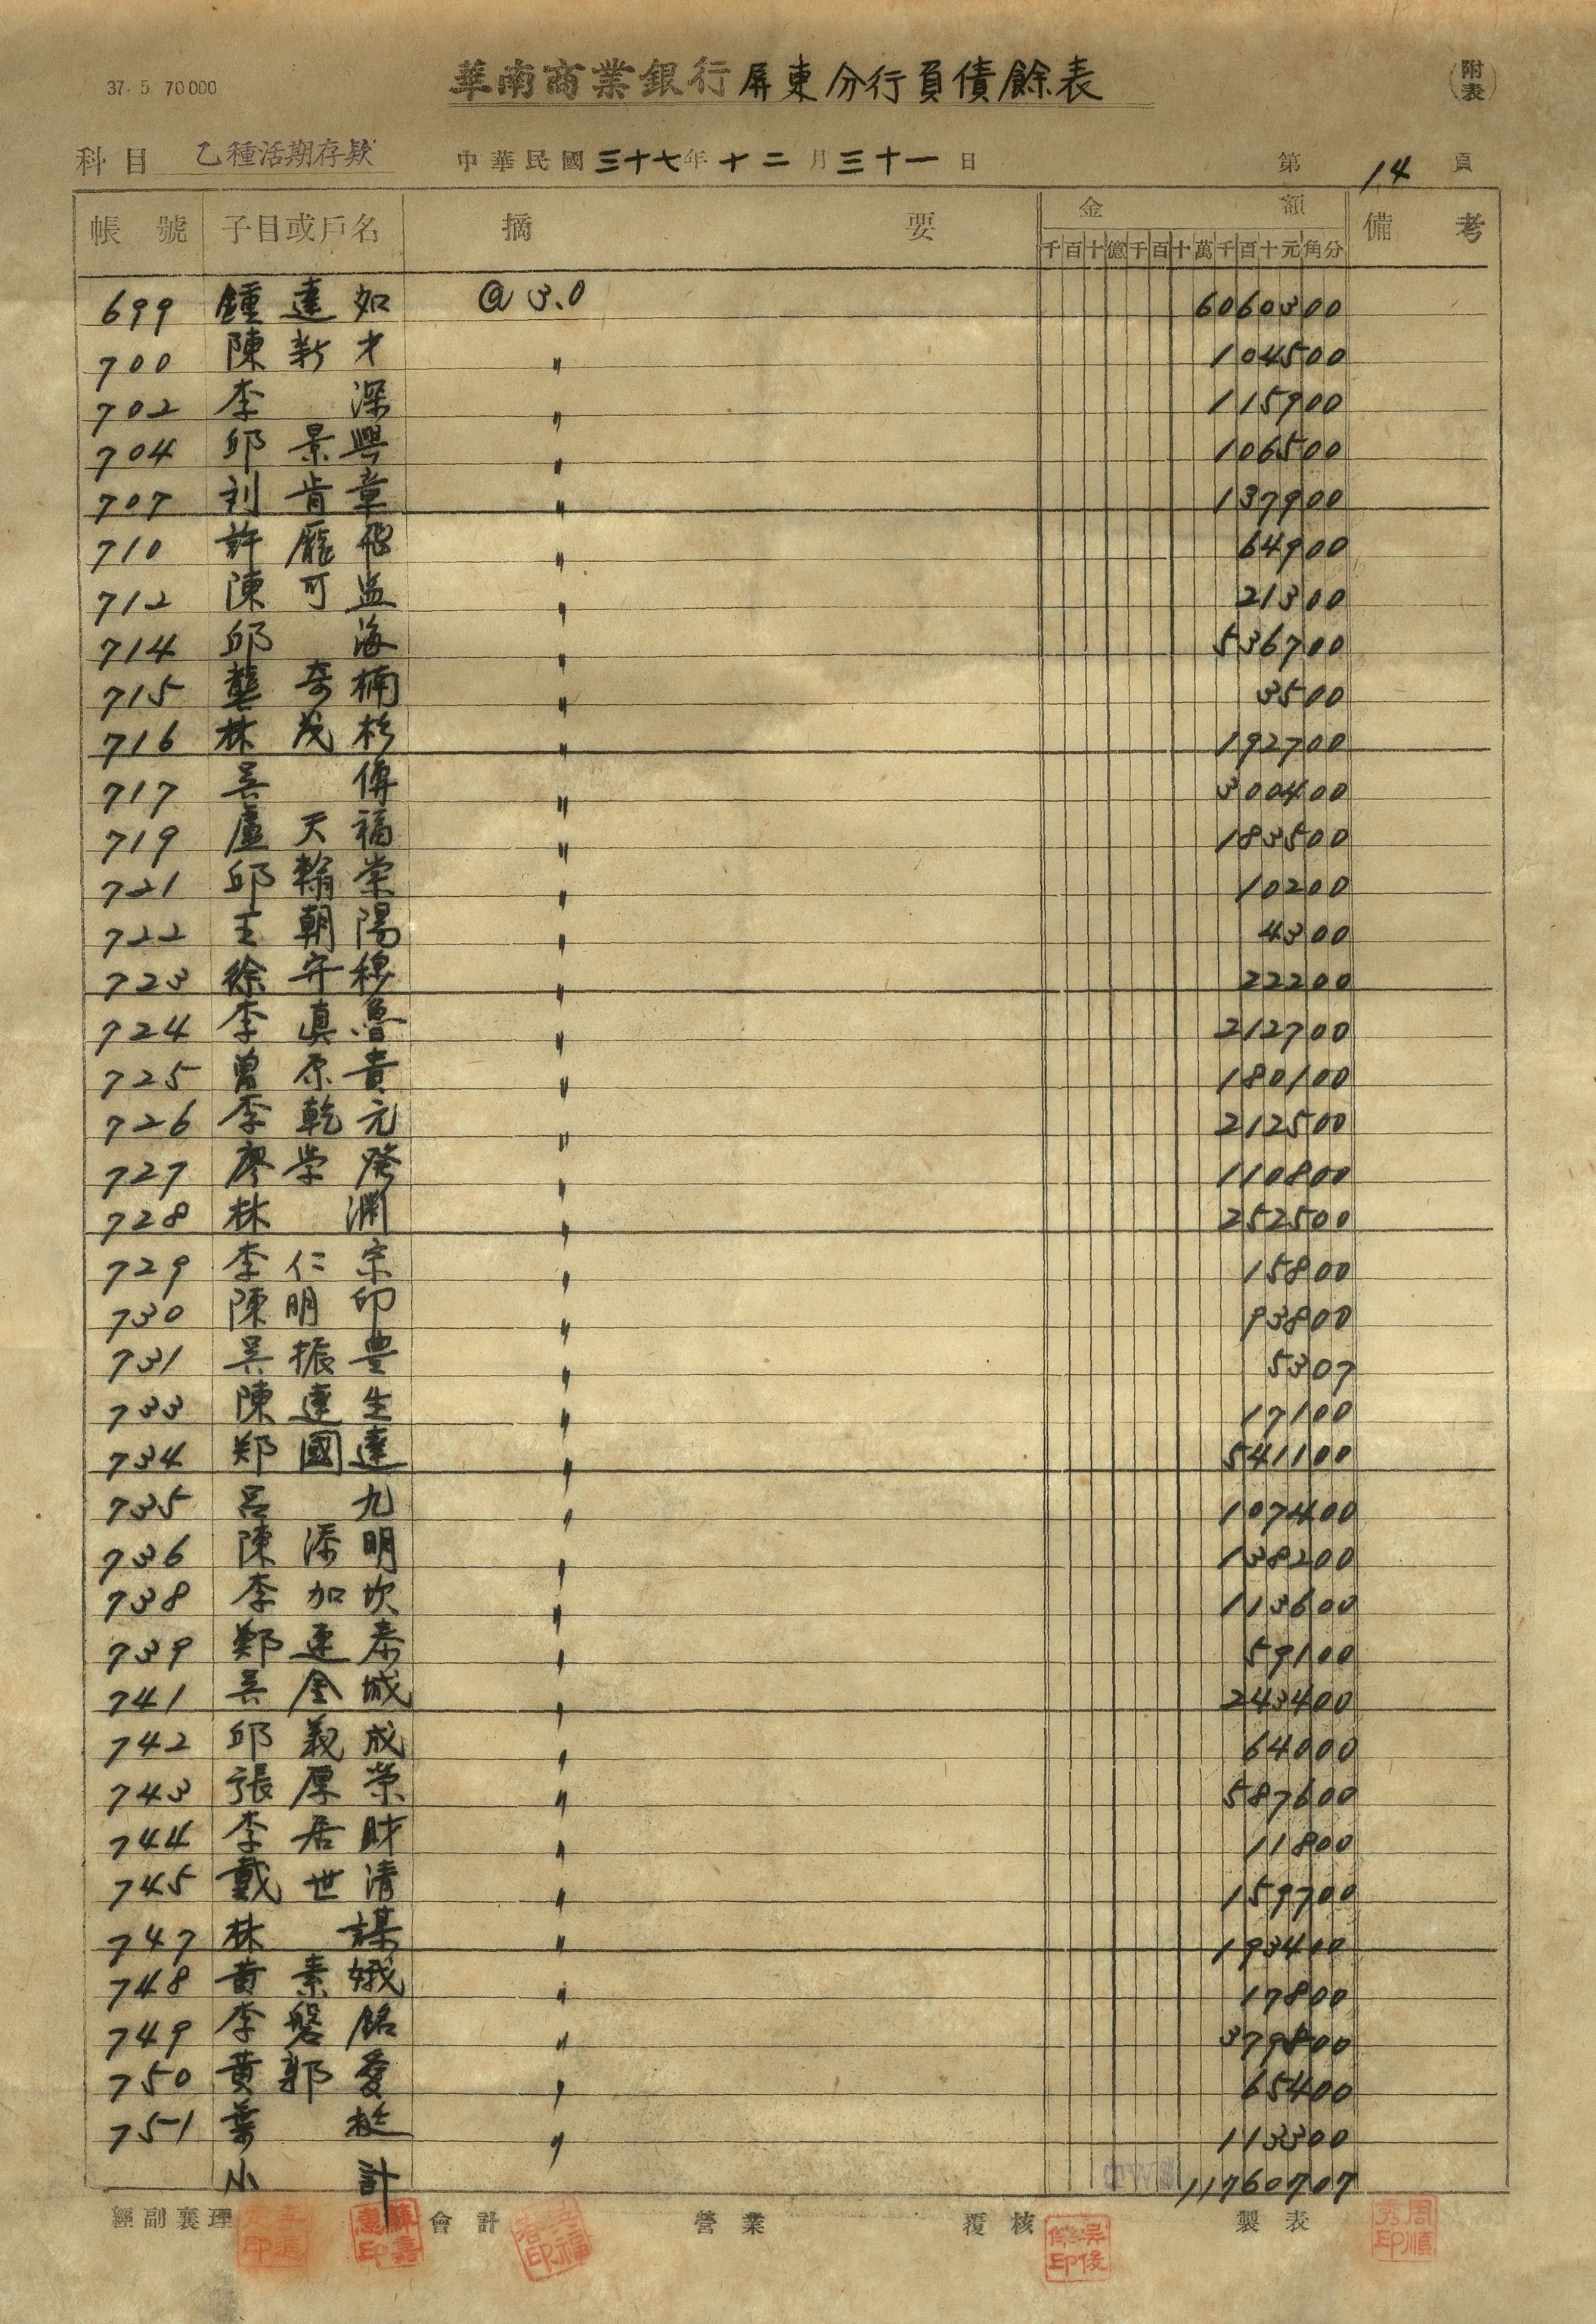 37. 5 70000
華南商業銀行屏東分行負債餘表
(附表)
科目 乙種活期存款 中華民國三十七年十二月三十一日 第14頁
帳號 子目或戶名 摘要 金額 備考
千百十億千百十萬千百十元角分
699 鍾達如 @3.0 6060300
700 陳新才 〃 104500
702 李深 〃 115900
704 邱景興 〃 106500
707 刘肯章 〃 137900
710 許龐飛 〃 64900
712 陳可益 〃 21300
714 邱海 〃 536700
715 龔奇楠 〃 3500
716 林茂杉 〃 192700
717 吳傳 〃 300400
719 盧天福 〃 183500
721 邱翰棠 〃 10200
722 王朝陽 〃 4300
723 徐守穆 〃 22200
724 李真魯 〃 212700
725 曾原貴 〃 180100
726 李乾元 〃 212500
727 廖学發 〃 110800
728 林渊 〃 252500
729 李仁宗 〃 15800
730 陳明印 〃 93800
731 吳振豊 〃 5307
733 陳達生 〃 17100
734 郑國達 〃 541100
735 呂九 〃 107400
736 陳添明 〃 138200
738 李加坎 〃 113600
739 鄭連泰 〃 59100
741 吳金城 〃 243400
742 邱義成 〃 64000
743 張厚榮 〃 587600
744 李居財 〃 11800
745 戴世清 〃 159700
747 林謀 〃 193400
748 黃素娥 〃 17800
749 李磐銘 〃 379800
750 黃郭愛 〃 65400
751 葉梃 〃 113300
小計 11760707
經副襄理 會計 營業 覆核 製表
蘇嘉惠印
周順秀印